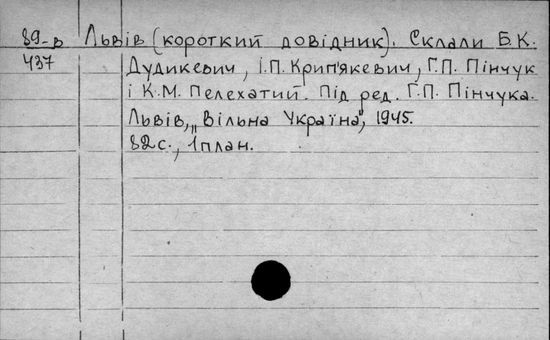 89-в Львів (короткий довідник). Склали Б.К.
437 Дудикевич, І.П. Крип'якевич, Г.П. Пінчук
і К.М. Пелехатий. Під ред. Г.П. Пінчука.
Львів, „Вільна Україна", 1945.
82с., 1план.